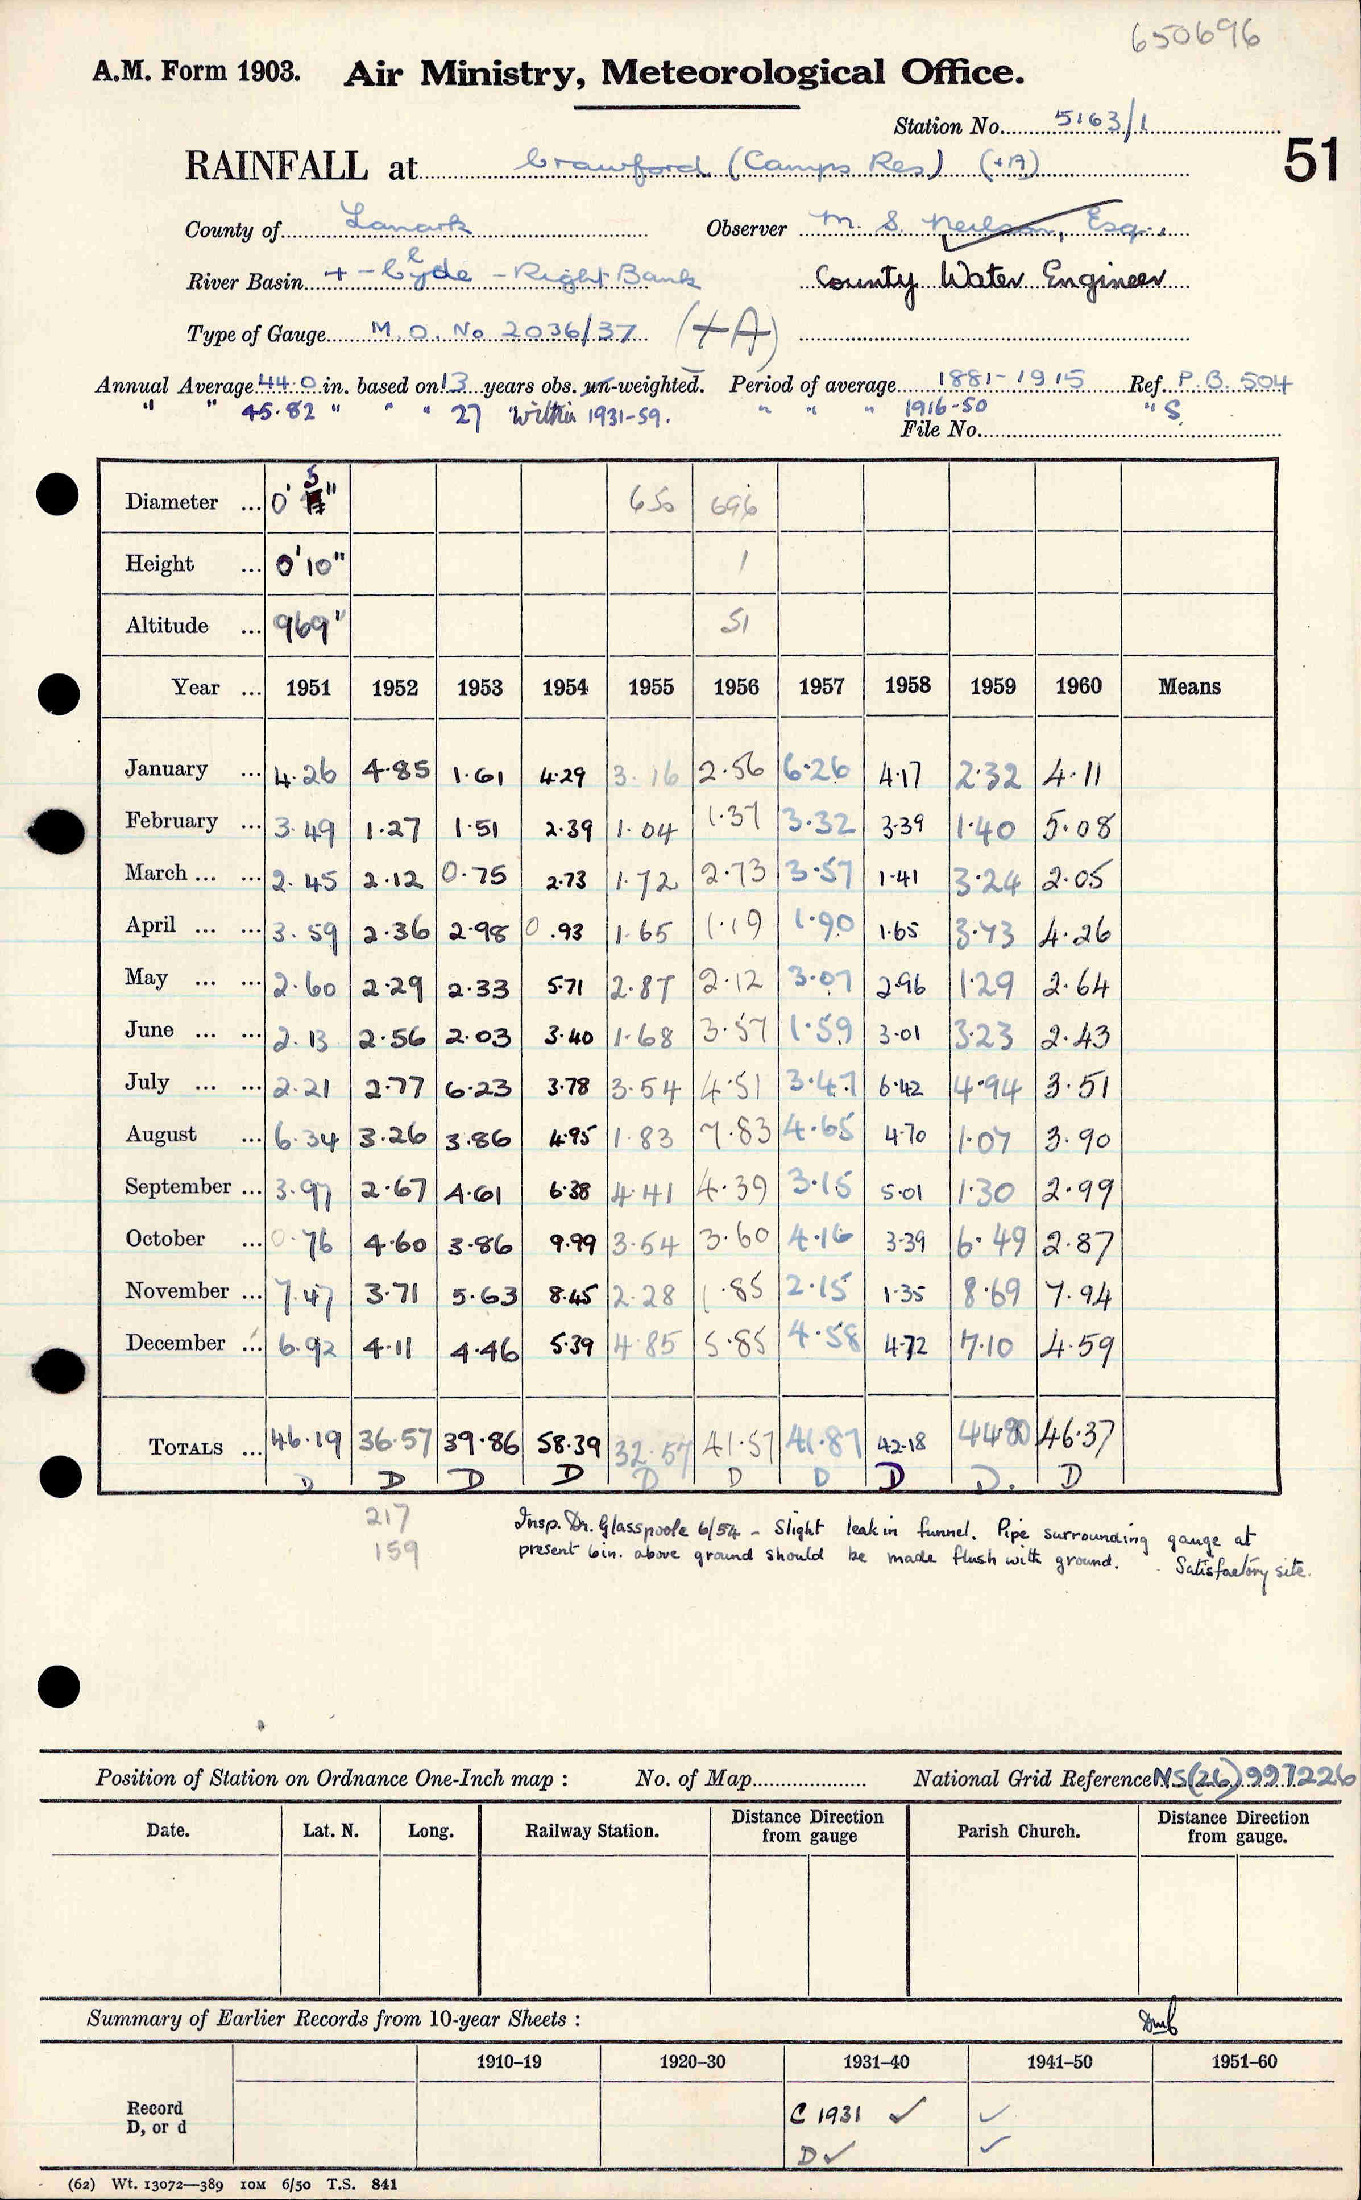 650696
A.M. Form 1903. Air Ministry, Meteorological Office.
Station No. 5163/1
51
RAINFALL at Crawford (Camps Res) (+A)
County of Lanark Observer M. S. Neilson, Esq.,
River Basin + - Clyde - Right Bank County Water Engineer
Type of Gauge M.O. No 2036/37 (+A)
Annual Average 44.0 in. based on 13 years obs. un-weighted. Period of average 1881-1915 Ref. P.B. 504
" " 45.82 " " " 27 " Within 1931-59. " " " 1916-50 " S.
File No.
Diameter ... 0' 5" 650 696
Height ... 0' 10" 1
Altitude ... 969" 51
Year ... 1951 1952 1953 1954 1955 1956 1957 1958 1959 1960 Means
January ... 4.26 4.85 1.61 4.29 3.16 2.56 6.26 4.17 2.32 4.11
February ... 3.49 1.27 1.51 2.39 1.04 1.37 3.32 3.39 1.40 5.08
March ... ... 2.45 2.12 0.75 2.73 1.72 2.73 3.57 1.41 3.24 2.05
April ... ... 3.59 2.36 2.98 0.93 1.65 1.19 1.90 1.65 3.73 4.26
May ... ... 2.60 2.29 2.33 5.71 2.87 2.12 3.07 2.96 1.29 2.64
June ... ... 2.13 2.56 2.03 3.40 1.68 3.57 1.59 3.01 3.23 2.43
July ... ... 2.21 2.77 6.23 3.78 3.54 4.51 3.47 6.42 4.94 3.51
August ... 6.34 3.26 3.86 4.95 1.83 7.83 4.65 4.70 1.07 3.90
September ... 3.97 2.67 4.61 6.38 4.41 4.39 3.15 5.01 1.30 2.99
October ... 0.76 4.60 3.86 9.99 3.54 3.60 4.16 3.39 6.49 2.87
November ... 7.47 3.71 5.63 8.45 2.28 1.85 2.15 1.35 8.69 7.94
December ... 6.92 4.11 4.46 5.39 4.85 5.85 4.58 4.72 7.10 4.59
TOTALS ... 46.19 36.57 39.86 58.39 32.57 41.57 41.87 42.18 44.80 46.37
D D D D D D D D D. D
217
159
Insp. Dr. Glasspoole 6/54 - Slight leak in funnel. Pipe surrounding gauge at
present 6in. above ground should be made flush with ground. Satisfactory site.
Position of Station on Ordnance One-Inch map : No. of Map National Grid Reference NS(26)997226
Date. Lat. N. Long. Railway Station. Distance from gauge Direction Parish Church. Distance from gauge. Direction
Summary of Earlier Records from 10-year Sheets :
1910–19 1920–30 1931–40 1941–50 1951–60
Record C 1931 ✓ ✓
D, or d D ✓ ✓
(62) Wt. 13072—389 10M 6/50 T.S. 841